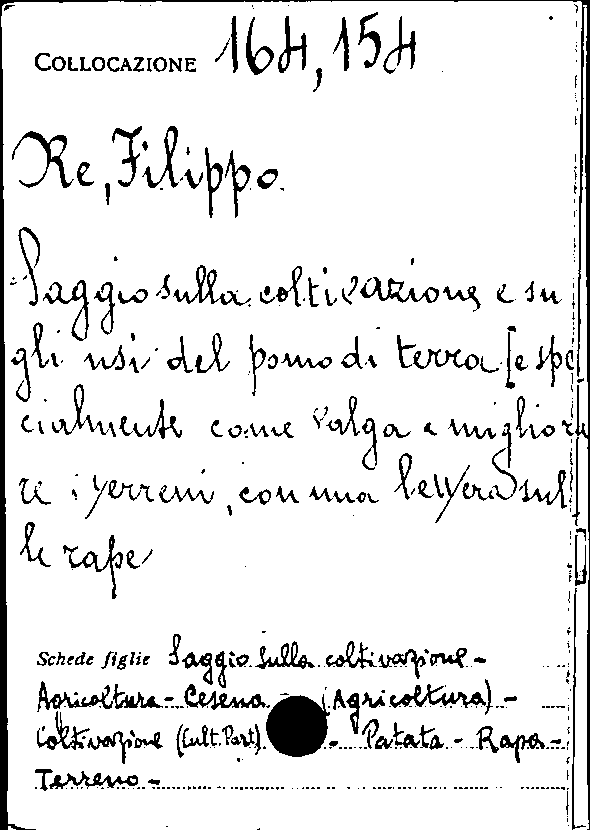 COLLOCAZIONE 164,154
Re, Filippo
Saggio sulla coltivazione e su
gli usi del pomo di terra [e spe
cialmente come valga a migliora
re i terreni, con una lettera sul
le rape
Schede figlie Saggio sulla coltivazione -
Agricoltura - Cesena (Agricoltura) -
Coltivazione (Cult. Part) - Patata - Rapa -
Terreno -